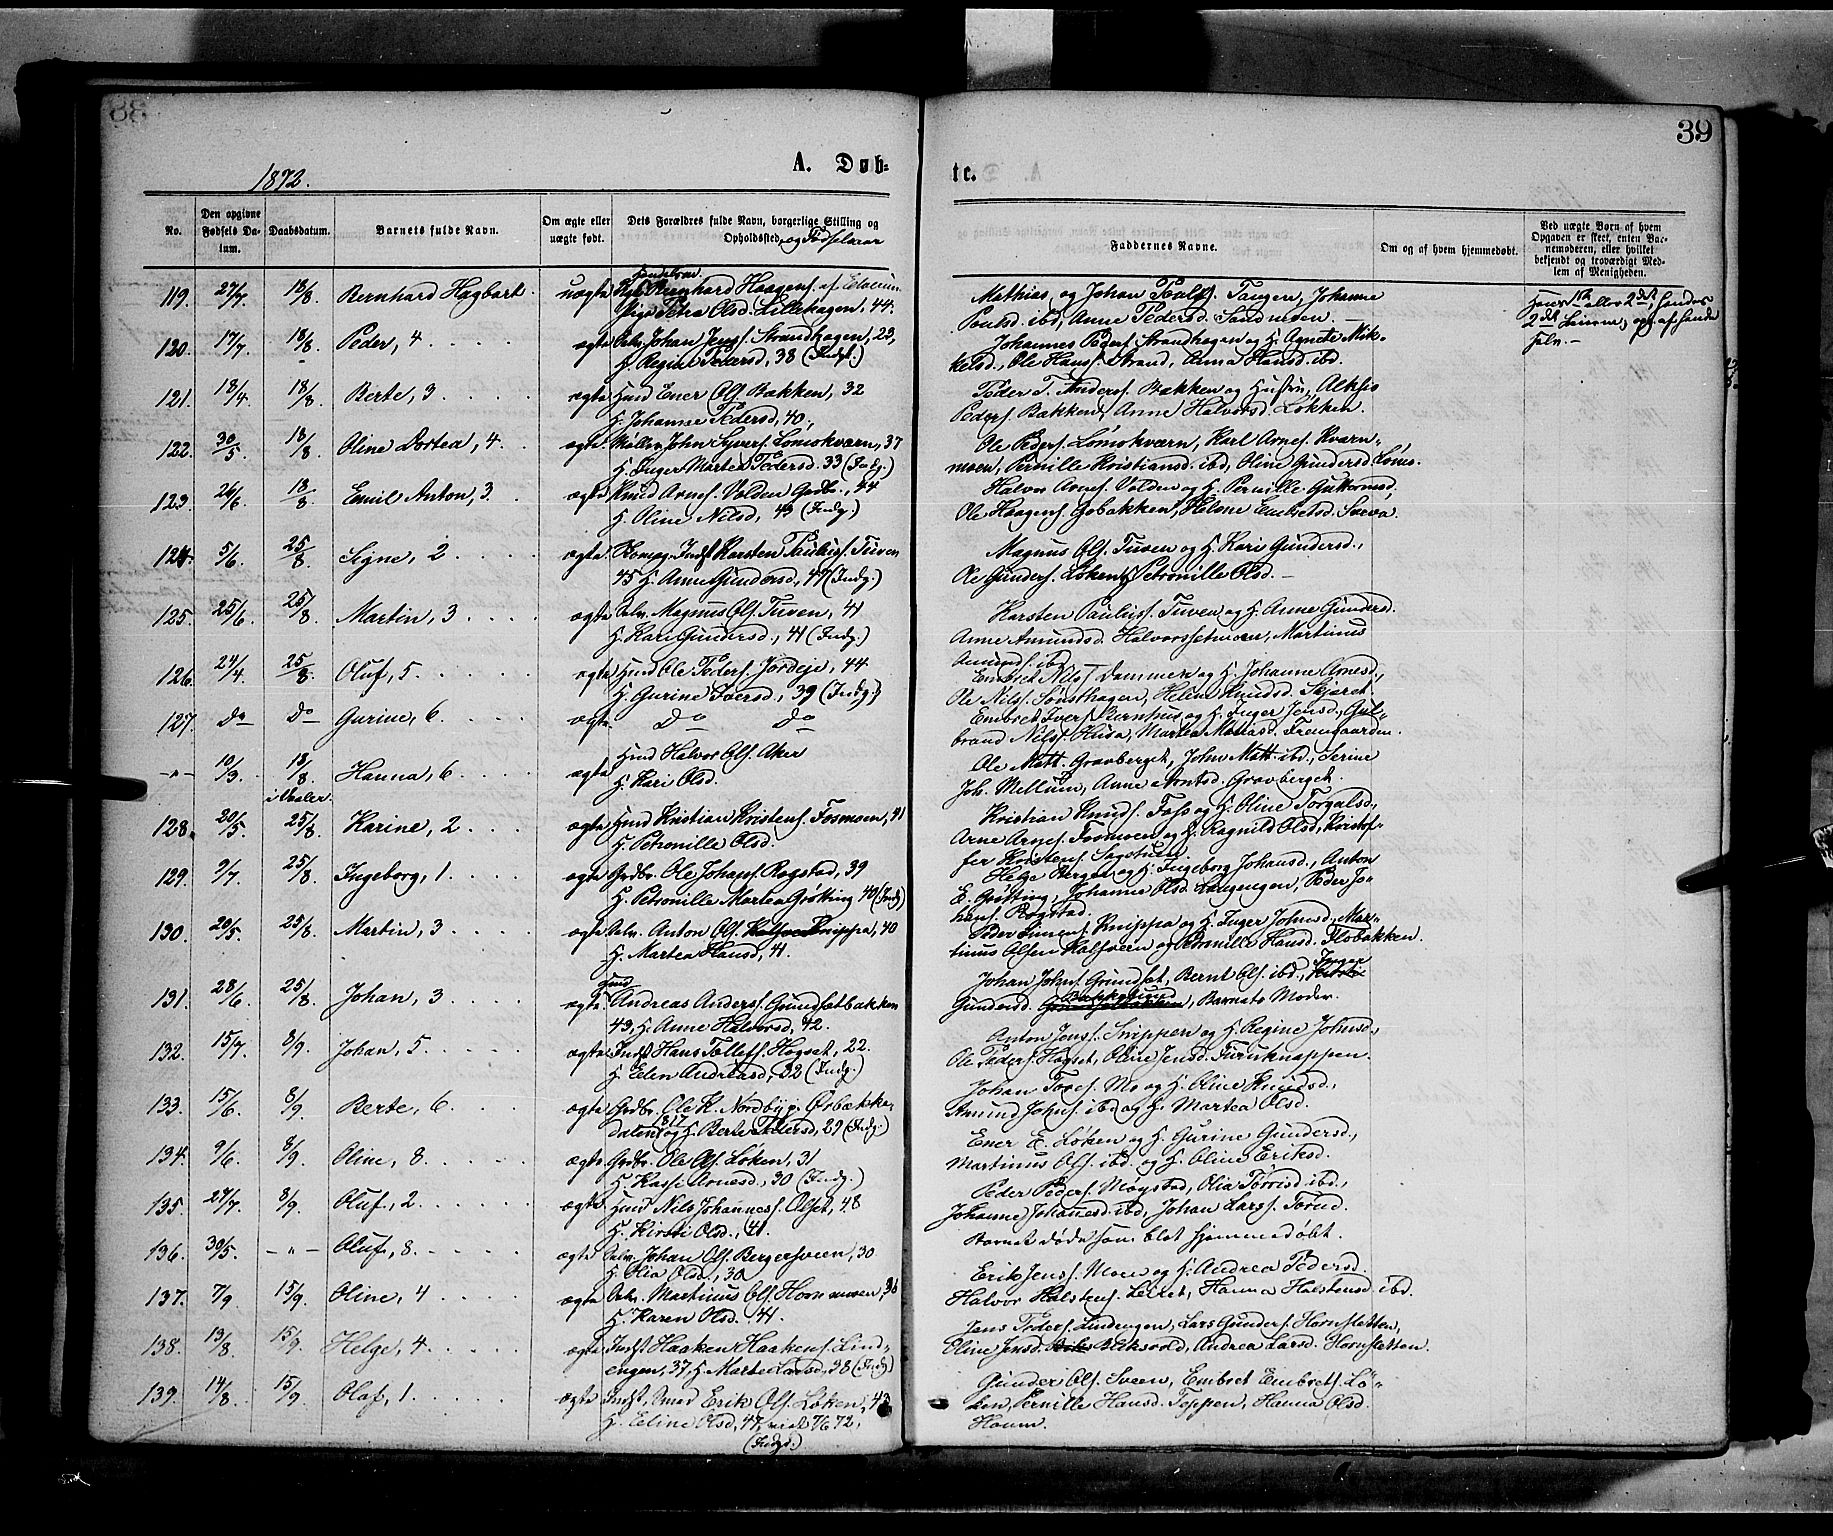 38
39
1872.
A. Døb-
te.
No.
Den opgivne Fødsels Datum.
Daabsdatum.
Barnets fulde Navn.
Om ægte eller uægte født.
Dets Forældres fulde Navn, borgerlige Stilling og Opholdssted, og Fødselsaar
Faddernes Navne.
Om og af hvem hjemmedøbt.
Ved uægte Børn af hvem Opgaven er skeet, enten Barnemoderen, eller hvilket bekjendt og troværdigt Medlem af Menigheden.
119. 27/7. 18/8. Bernhard Hagbart. uægte Bernhard Haagens. af Elverum
Pige Petra Olsd. Lillehagen, 44.
Mathias og Johan Pouls. Tangen, Johanne
Poulsd. ibd, Anne Pedersd. Sandmoen. —
Hans 1ste eller 2det, hendes
2det Leierm, opg. af hende
selv. —
120. 17/7. 18/8. Peder, 4 ægte Johan Jens. Strandhagen, 23,
H. Regine Pedersd, 38 (Indg.)
Johannes Peders. Strandhagen og H. Agnete Mik-
kelsd, Ole Hans. Strand, Anna Hansd. ibd.
121. 18/4. 18/8. Berte, 3 ægte Hmd Ener Ols. Bakken, 32
H. Johanne Pedersd, 40.
Peder T. Anders. Bakken og Hustru, Alksis
Peders. Bakken, Anne Halvorsd. Løkken.
122. 30/5. 18/8. Oline Dortea, 4. ægte John Syvers. Lømokværn, 37
H. Inger Martea Pedersd. 33 (Indg.)
Ole Peders. Lømokværn, Karl Arnes. Kværn-
moen, Pernille Kristiansd. ibd, Oline Gundersd Lømo.
123. 26/6. 18/8. Emil Anton, 3. ægte Knud Arnes. Volden Grdbr., 44
H. Oline Nilsd, 43 (Indg.)
Halvor Arnes. Volden og H. Pernille Guttormsd,
Ole Haagens. Gobakken, Helene Embretsd. Sorva.
124. 5/6. 25/8. Signe, 2 ægte Indst Karsten Paulus. Tuven
45 H. Anne Gundersd, 47 (Indg.)
Magnus Ols. Tuven og H. Kari Gundersd.,
Ole Gunders. Løken, Petronille Olsd. —
125. 25/6. 25/8. Martin, 3 ægte Magnus Ols. Tuven, 41
H. Kari Gundersd., 41 (Indg.)
Karsten Paulus. Tuven og H. Anne Gundersd.
Anne Amundsd. Halvorssetmoen, Martinus
Amunds. ibd.
126. 24/4. 25/8. Oluf, 5. ægte Hmd Ole Peders. Jordeje, 44.
H. Gurine Iversd., 39 (Indg.)
Embret Nils. Dammen og H. Johanne Arnesd.,
Ole Nils. Sønsthagen, Helene Knudsd. Skjæret.
127. Do Do Gurine, 6. ægte Do Do
Embret Ivers. Bernhus og H. Inger Jensd., Gul-
brand Nils. Husa, Martea Matiasd. Fremgaarden.
—"— 10/3. 18/8. i Vaaler. Hanna, 6 ægte Hmd Halvor Ols. Aker
H. Kari Olsd.
Ole Matt. Gravberget, John Matt. ibd., Serine
Joh. Mellum, Anne Arntsd. Gravberget.
128. 20/5. 25/8. Karine, 2 ægte Hmd Kristian Kristens. Fosmoen, 41
H. Petronille Olsd.
Kristian Knuds. Foss og H. Oline Torgalsd.,
Arne Arnes. Fosmoen og H. Ragnild Olsd, Kristof-
fer Kristens. Sagstuen.
129. 9/7. 25/8. Ingeborg, 1 ægte Grdbr. Ole Johans. Rogstad, 39
H. Petronille Martea Grøtting 40 (Indg)
Helge Berger og H. Ingeborg Johansd., Anton
E. Grøtting, Johanne Olsd. Langengen, Peder Jo-
hans. Rogstad.
130. 20/5. 25/8. Martin, 3 ægte Anton Ols. Knippa, 40
H. Martea Hansd, 41.
Peder Simens. Knippa og H. Inger Johnsd., Mar-
tinus Olsen Kalsveen og Pernille Hansd. Flobakken.
131. 28/6. 25/8. Johan, 3 ægte Hmd Andreas Anders. Grundsetbakken
43, H. Anne Halvorsd, 42.
Johan Johns. Grundset, Bernt Ols. ibd., Inger
Gundersd. Bakkestuen, Barnets Moder.
132. 15/7. 8/9. Johan, 5 ægte Indst Hans Tollefs. Hogset, 22.
H. Elen Andreasd, 32 (Indg.)
Anton Jens. Snippen og H. Regine Johnsd.,
Ole Peders. Hogset, Oline Jensd. Furuknappen.
133. 15/6. 8/9. Berte, 6 ægte Grdbr. Ole K. Nordby p. Ørbække-
dalen 1817 og H. Berte Pedersd, 29 (Indg.)
Johan Tores. Mo og H. Oline Knudsd.,
Amund Johns. ibd og H. Martea Olsd.
134. 9/6. 8/9. Oline, 8 ægte Grdbr. Ole Ols. Løken, 31
H. Kassi Arnesd., 30 (Indg.)
Ener E. Løken og H. Gurine Gundersd.,
Martinus Ols. ibd. og H. Oline Eriksd.
135. 27/7. 8/9. Oluf, 2 ægte Hmd Nils Johannes. Olset, 48
H. Kirsti Olsd., 41.
Peder Peders. Møystad, Olia Tørrisd ibd.,
Johanne Johanesd. ibd, Johan Lars. Torud.
136. 30/5. —"— Oluf, 8. ægte Johan Ols. Bergersveen, 30
H. Olia Olsd., 30
Barnet døde som blot hjemmedøbt.
137. 7/9. 15/9. Oline, 4 ægte Martinus Ols. Hornmoen, 36
H. Karen Olsd. 41.
Erik Jens. Moen og H. Andrea Pedersd.
Halvor Halstens. Leitet, Hanna Halstensd. ibd.
138. 13/8. 15/9. Helge, 4 ægte Indst Haaken Haakens. Lind-
engen, 37, H. Marte Larsd, 38 (Indg)
Jens Peders. Lindengen, Lars Gunders. Hornsletten,
Oline Jensd. Bliksvold, Andrea Larsd. Hornsletten.
139. 14/8. 15/9. Olaf, 1 ægte Indst, Smed Erik Ols. Løken, 43
H. Eline Olsd, 47, viet 7/6 72,
(Indg.)
Gunder Ols. Sveen, Embret Embrets. Lø-
ken, Pernille Hansd. Teppen, Hanna Olsd.
Houm.